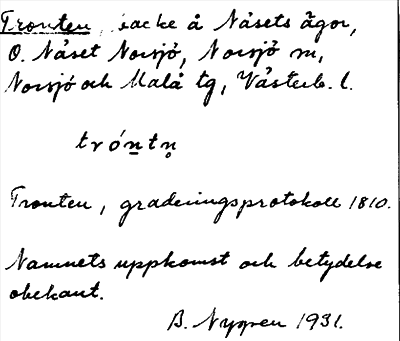 Tronten, backe å Nåsets ägor,
O. Nåset Norsjö, Norsjö sn,
Norsjö och Malå tg, Västerb. l.
tróntn̥
Tronten, graderingsprotokoll 1810.
Namnets uppkomst och betydelse
obekant.
B. Nygren 1931.